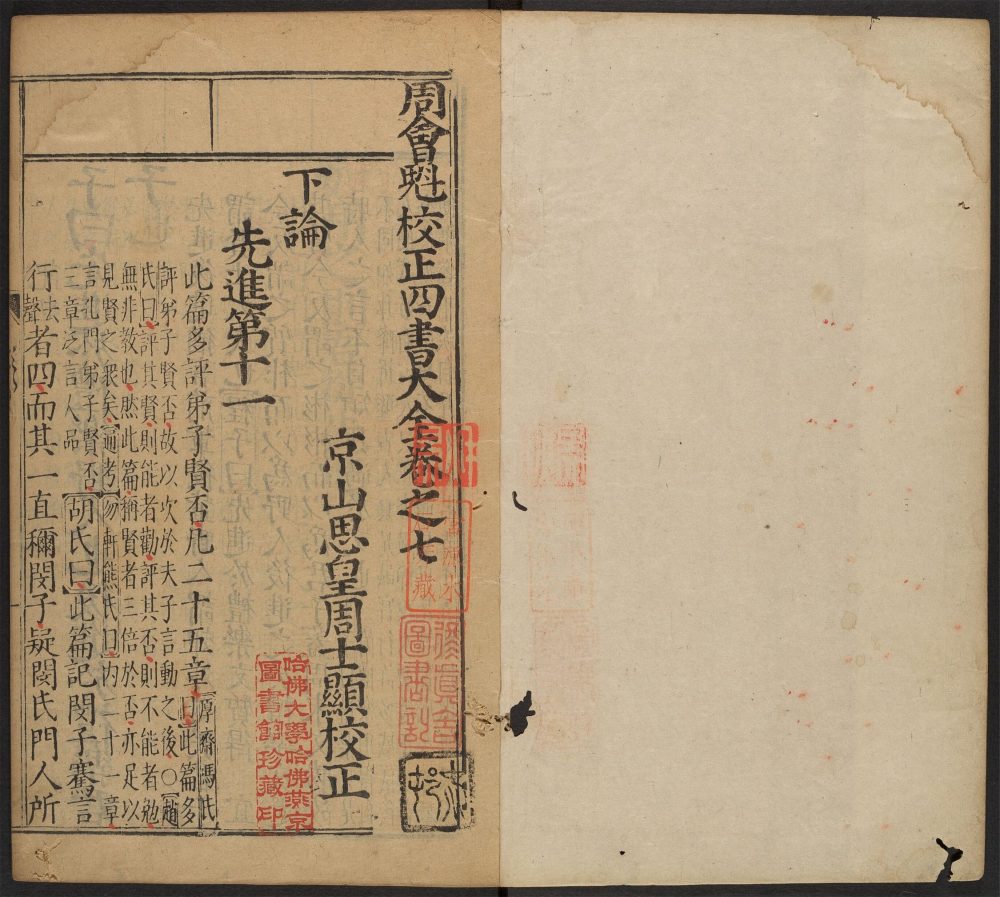 周會魁校正四書大全卷之七
京山思皇周士顯校正
下論
先進第十一
此篇多評弟子賢否凡二十五章
厚齋馮氏
曰此篇多
評弟子賢否故以次於夫子言動之後○趙
氏曰評其賢則能者勸評其否則不能者勉
無非教也然此篇稱賢者三倍於否亦足以
見賢之衆矣
勿軒熊氏曰內二十一章
言孔門弟子賢否
三章泛言人品
胡氏曰此篇記閔子騫言
行去聲者四而其一直稱閔子疑閔氏門人所
哈佛大學哈佛燕京
圖書館珍藏印
藏
圖書記